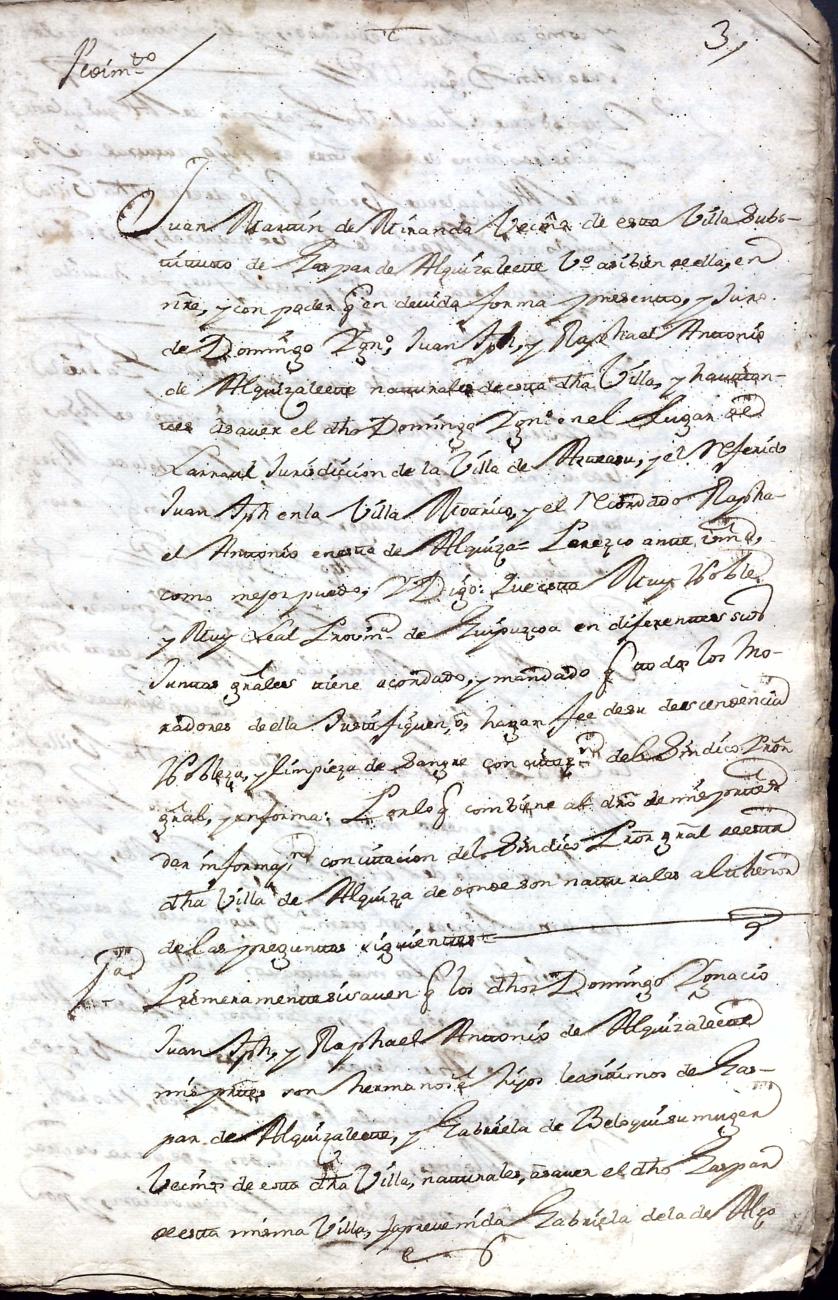 3,
Pedim.to
Juan Martin de Miranda Vecin.o de esta Villa Subs-
tituto de Gaspar de Alquizalete V.o asibien de ella, en
nre, y con poder q en devida forma presento, y Juro
de Domingo Ygn.o, Juan Jph, y Raphael Antonio
de Alquizalete naturales de esta dha Villa, y havitan-
tes asaver el dho Domingo Ygn.o en el Lugar de
Larraul Jurisdicion de la Villa de, y el Referido
Juan Jph en la Villa, y el Recordado Rapha-
el Antonio en esta de Alquiza= Parezco ante vmd,
como mejor puedo; Y Digo: Que esta Muy Noble
y Muy Leal Provin.a de Guipuzcoa en diferentes sus
Juntas grales tiene acordado, y mandado q todos los Mo-
radores de ella Justifiquen, o, hagan fee de su descendencia
Nobleza, y limpieza de Sangre con citaz.on del Sindico Pror
gral, y en forma: Por lo q combiene al dro de mis partes
dar informa.on con citacion del Sindico Pror gral de esta
dha Villa de Alquiza de donde son naturales al thenor
de las preguntas siguientes
1.a
Primeramente si saven q los dhos Domingo Ygnacio
Juan Jph, y Raphael Antonio de Alquizalete
mis ptes son hermanos é hijos lexitimos de Gas-
par de Alquizalete, y Gabriela de Beloqui su muger
Vecinos de esta dha Villa, naturales, asaver el dho Gaspar
de esta misma Villa, y a prevenida Gabriela de la de Alço